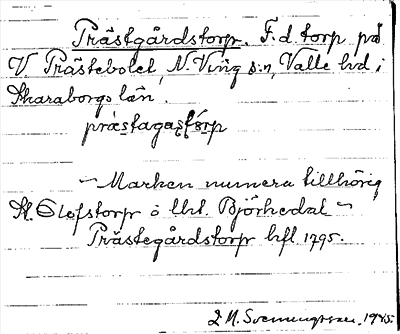 Prästgårdstorp. F.d. torp på
V Prästebolet, N. Ving s:n, Valle hd i
Skaraborgs län.
prästagastorp
— Marken numera tillhörig
St. Olofstorp o Uht. Björkedal —
Prästegårdstorp hfl 1795.
1945.